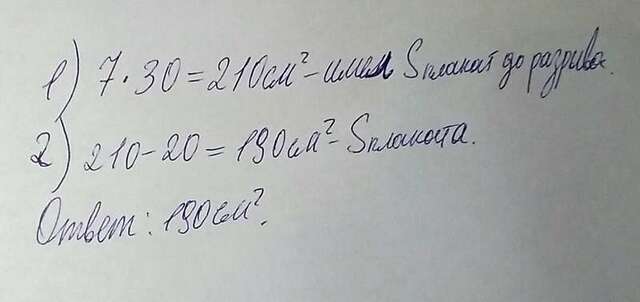 1) 7·30=210см²-имел Sплакат до разрыва.
2) 210-20=190см²-Sплаката.
Ответ: 190см².